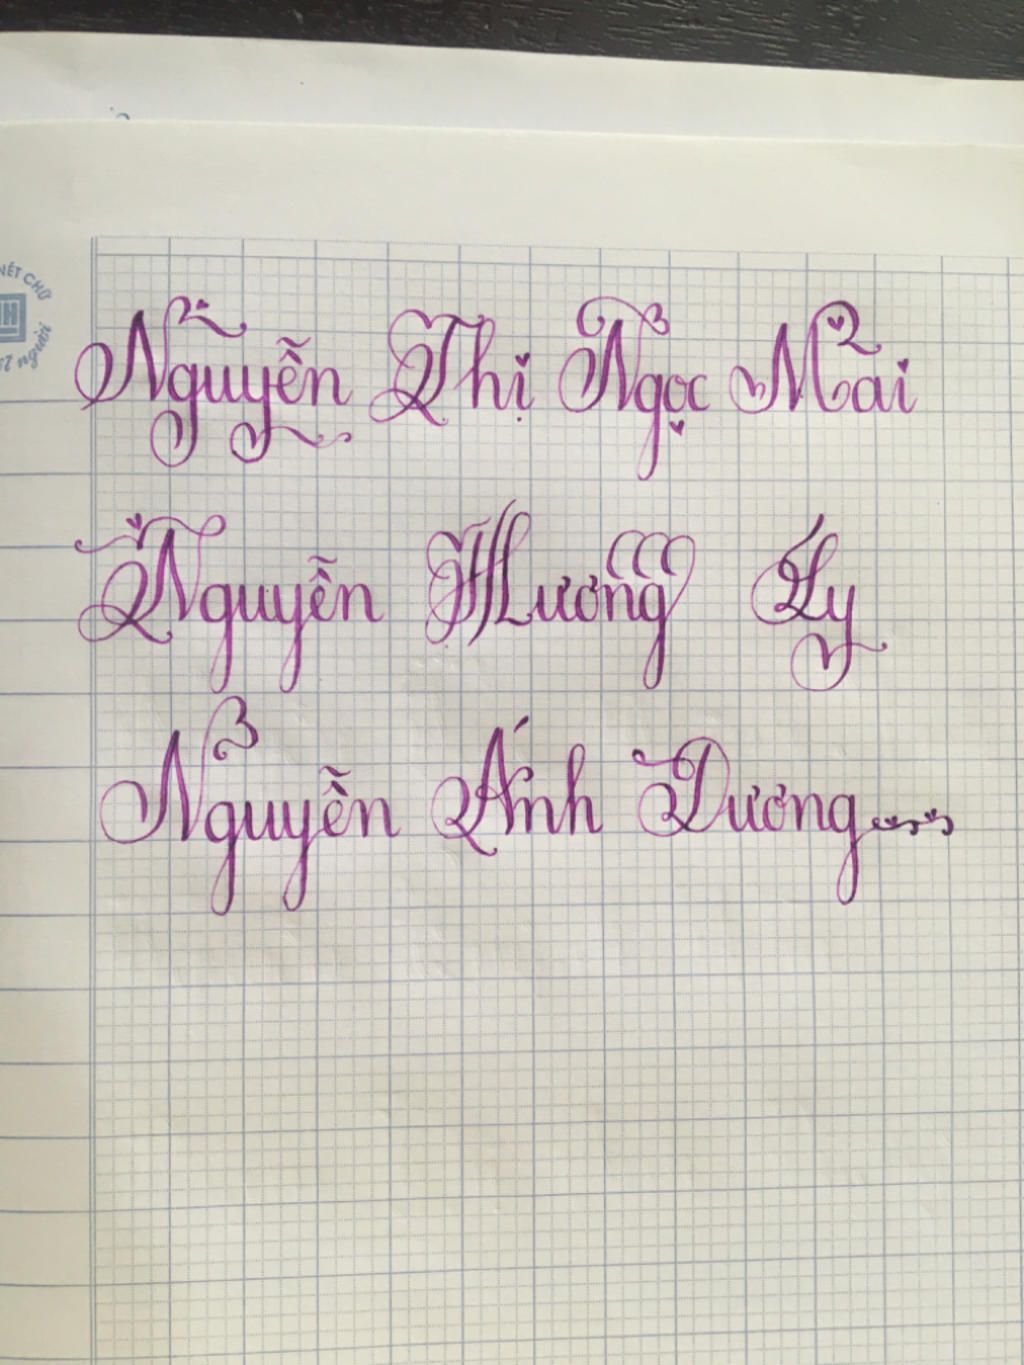 NÉT CHỮ
người
Nguyễn Thị Ngọc Mai
Nguyễn Hương Ly
Nguyễn Ánh Dương